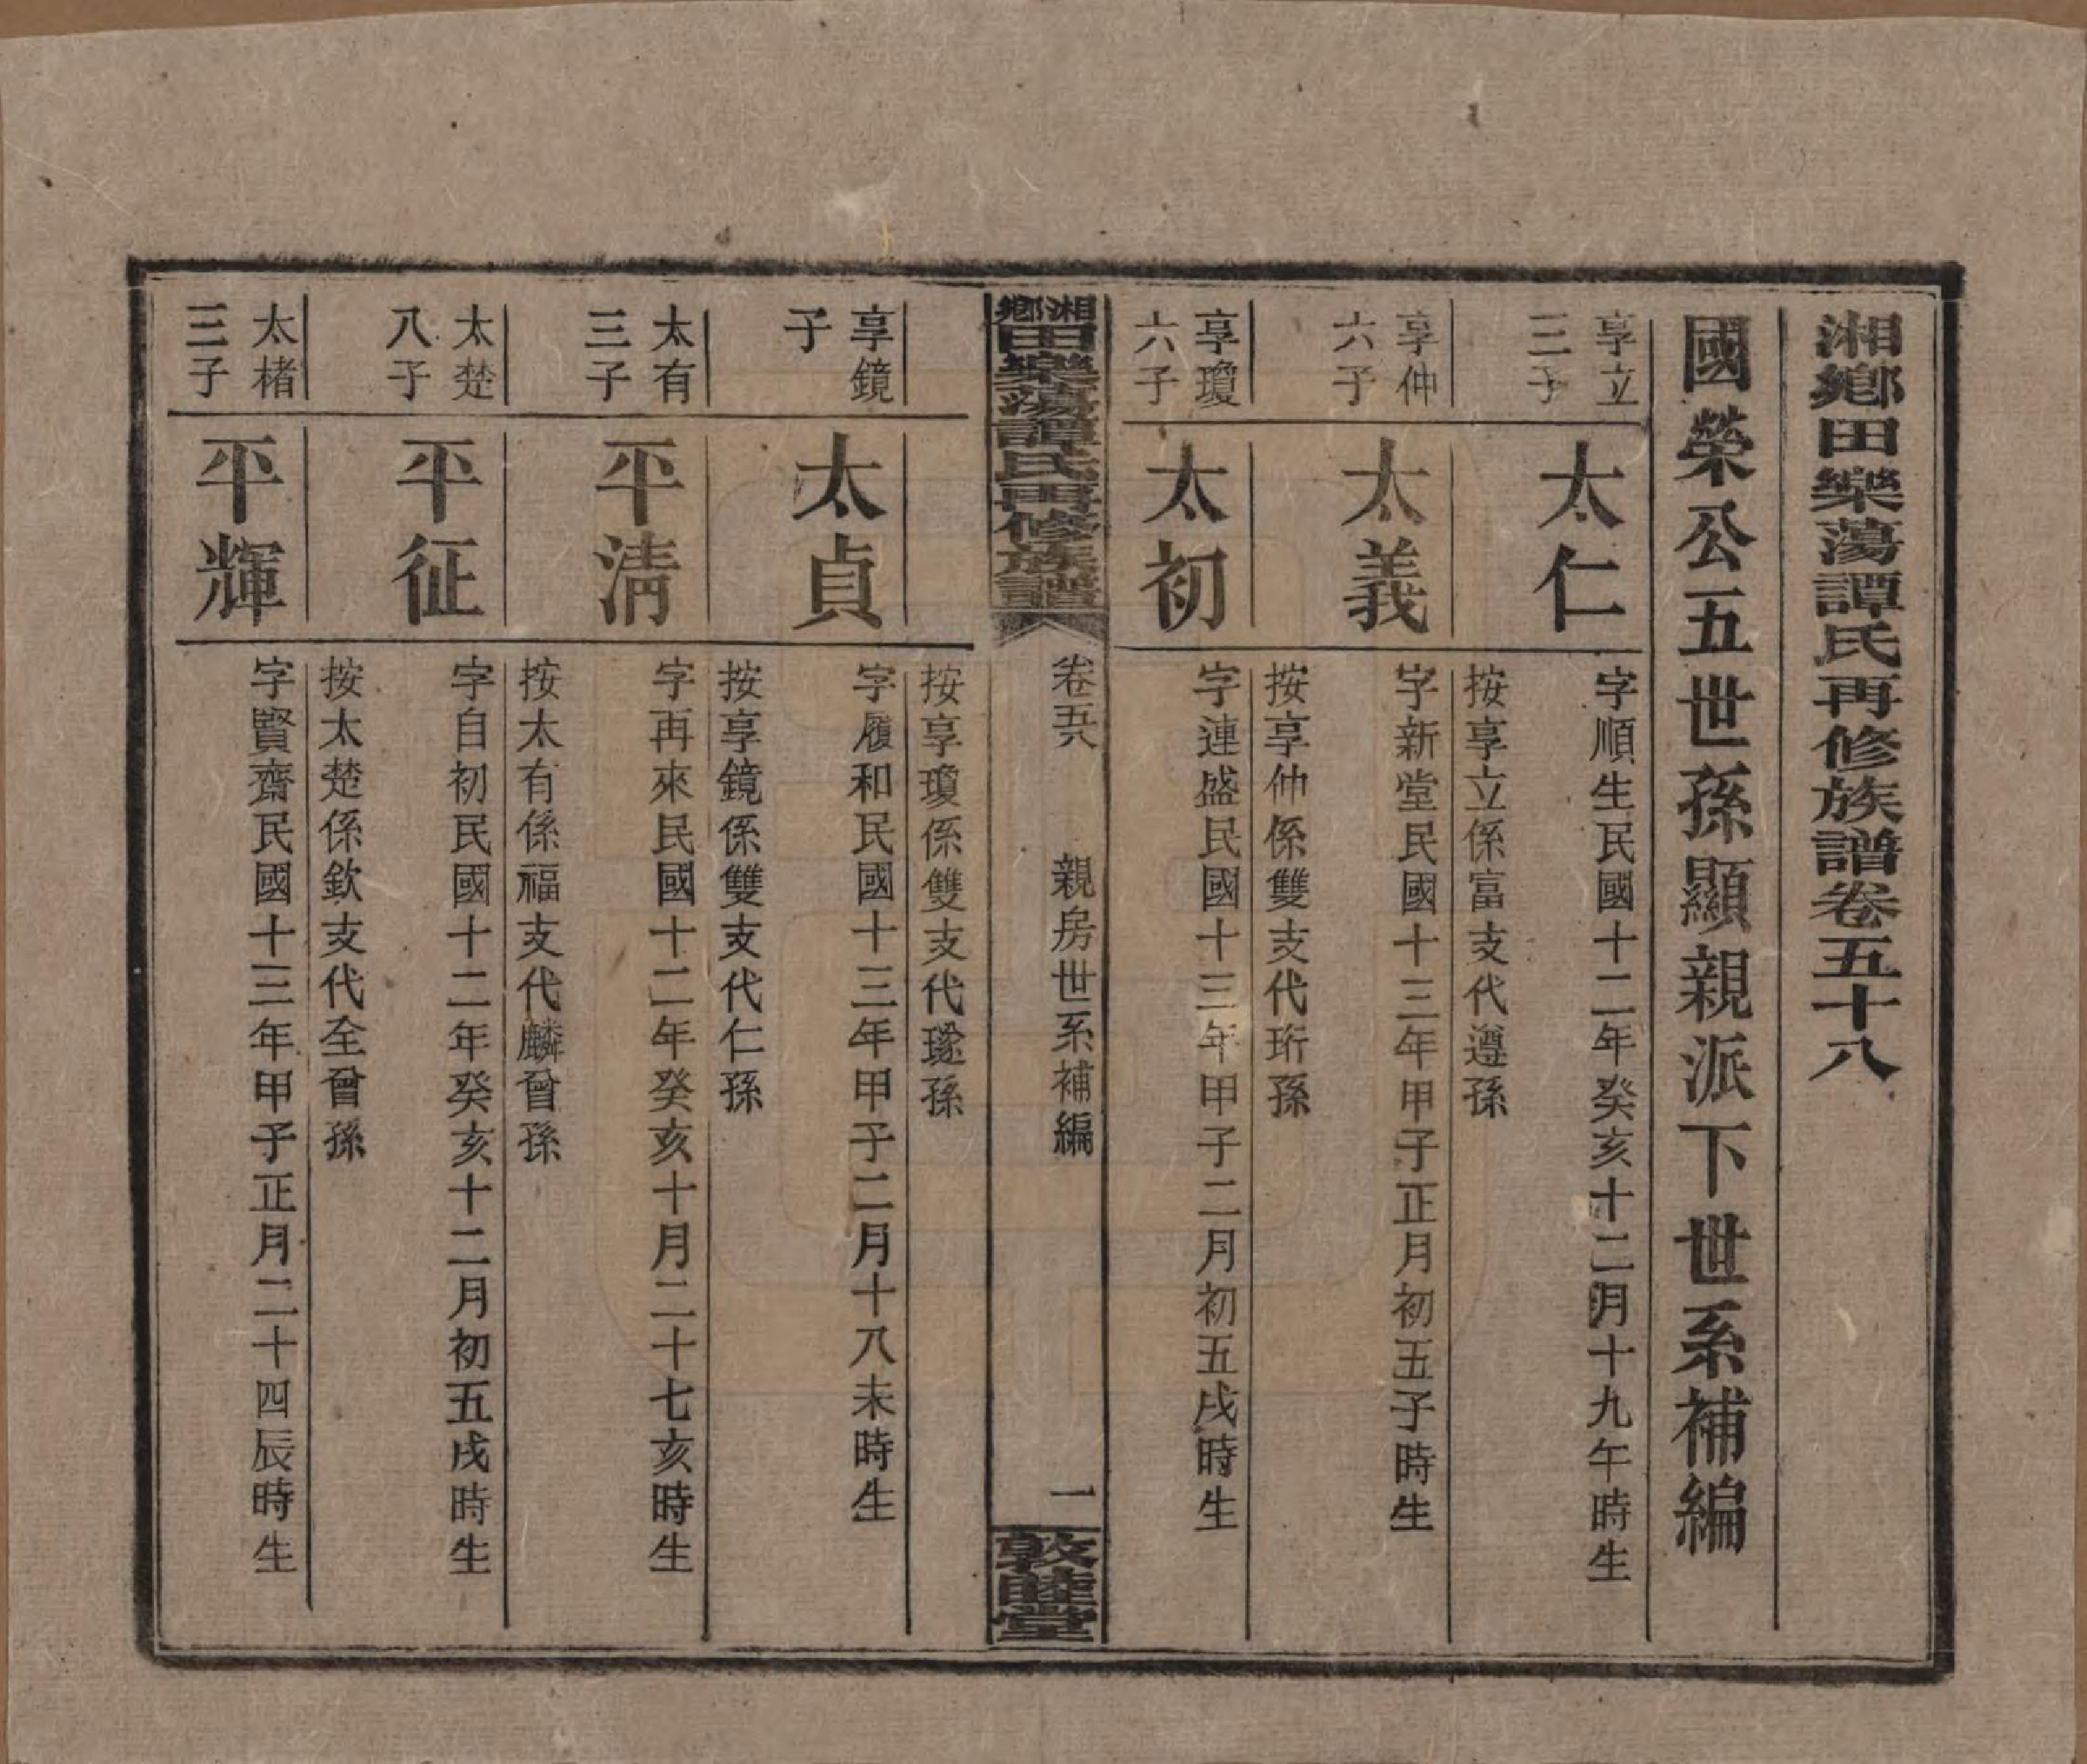 湘鄉田樂蕩譚氏再修族譜卷五十八
國榮公五世孫顯親派下世系補編
享立
三子
太仁
字順生民國十二年癸亥十二月十九午時生
按享立係富支代遵孫
享仲
六子
太義
字新堂民國十三年甲子正月初五子時生
按享仲係雙支代珩孫
享瓊
六子
太初
字連盛民國十三年甲子二月初五戌時生
湘鄉田樂蕩譚氏再修族譜
卷五八
親房世系補編
一
敦睦堂
按享瓊係雙支代璲孫
享鏡
子
太貞
字履和民國十三年甲子二月十八未時生
按享鏡係雙支代仁孫
太有
三子
平清
字再來民國十二年癸亥十月二十七亥時生
按太有係福支代麟曾孫
太楚
八子
平征
字自初民國十二年癸亥十二月初五戌時生
按太楚係欽支代全曾孫
太楮
三子
平輝
字賢齋民國十三年甲子正月二十四辰時生